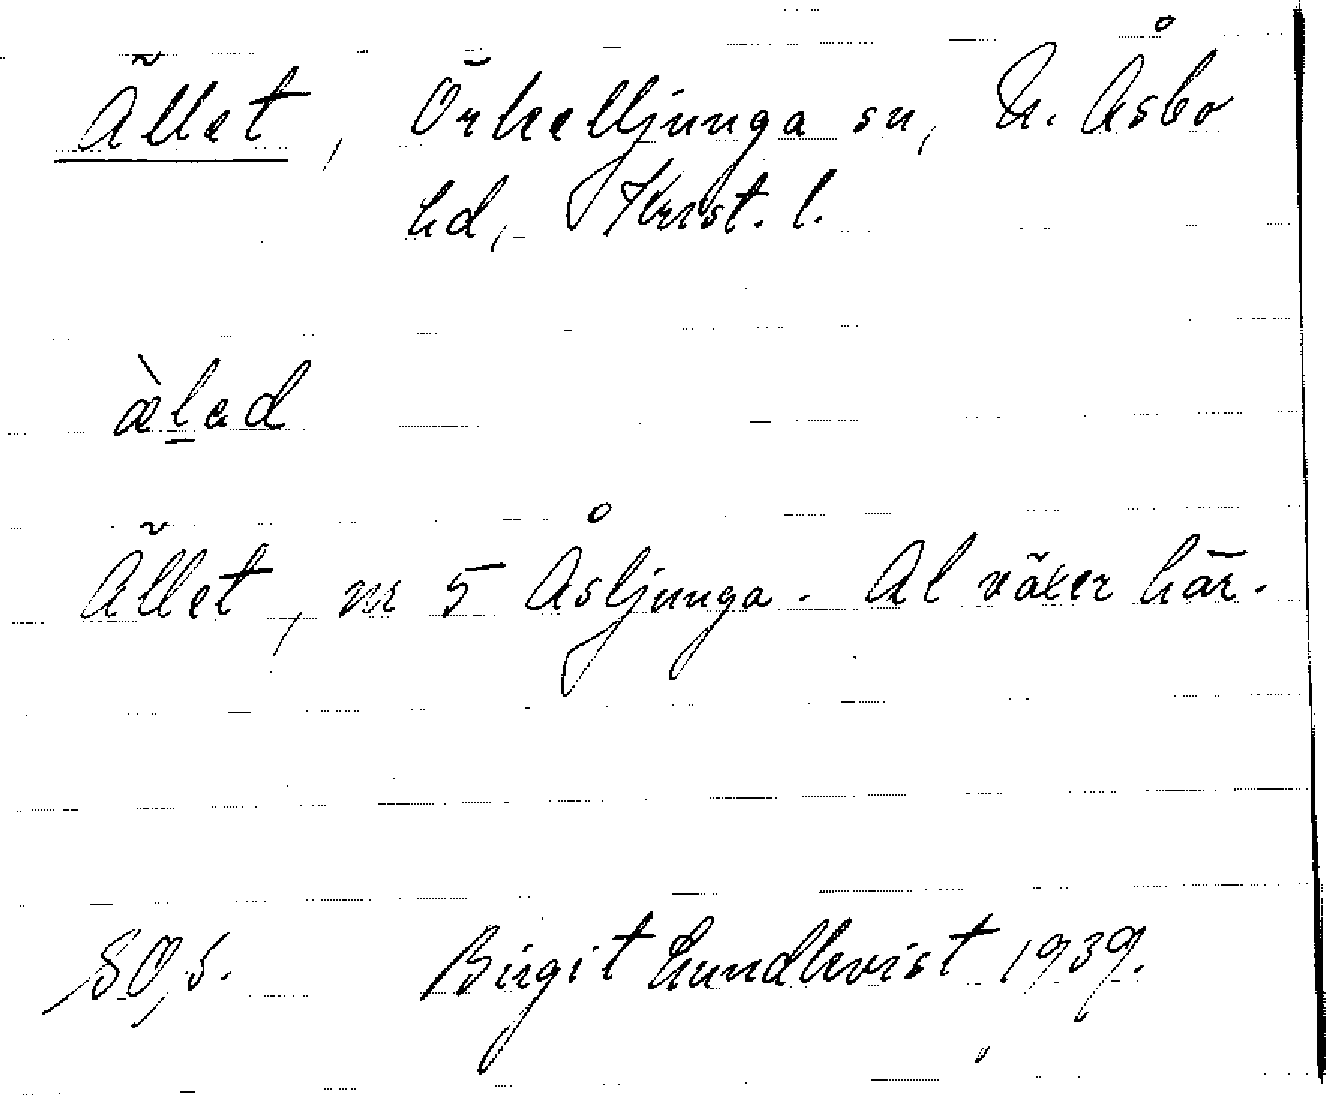 Ället, Örkelljunga sn, N. Åsbo
hd, Krist. l.
æ̀l̲ad
Ället, nr 5 Åsljunga. Al växer här.
SO, s. Birgit Lundkvist 1939.